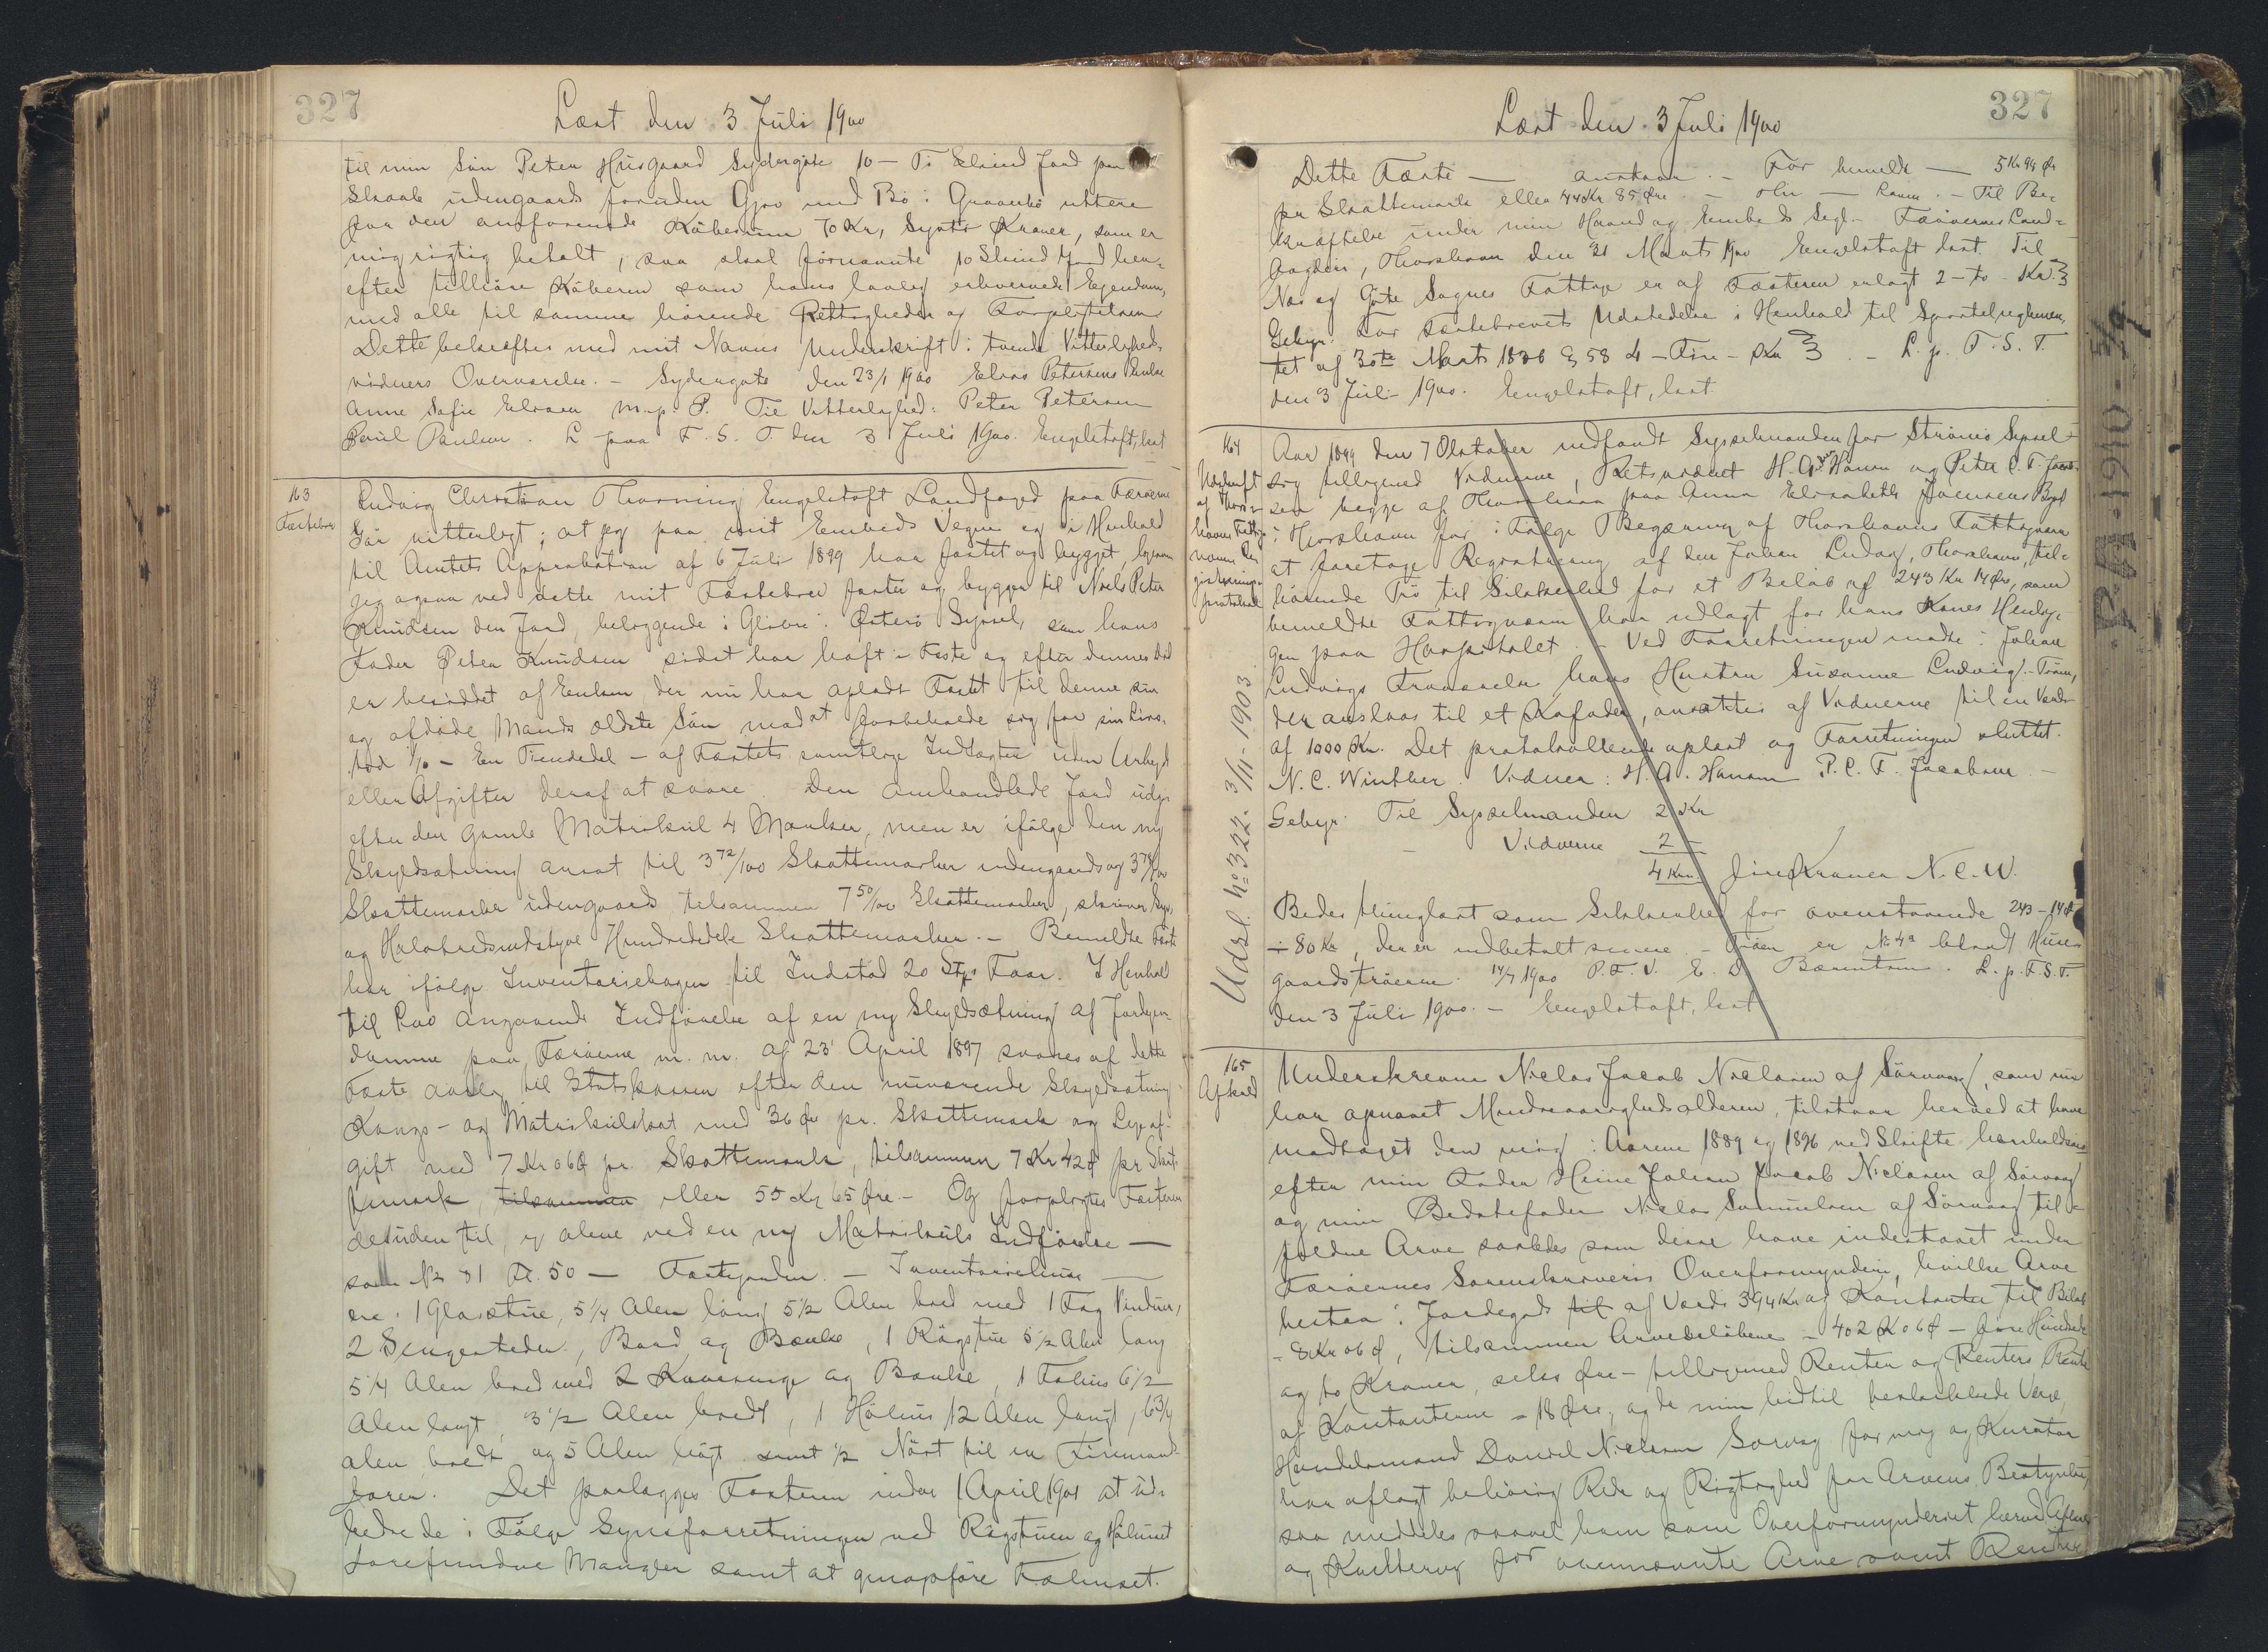 327
Læst den 3 Juli 1900
til min Sön Peter Husgaard Sydergöte 10 – Ti Skind Jord paa
Skaale udengaards foruden Gjov med Bö i
for den anförende Köbesum 70 Kr, Sytti Kroner, som er
mig rigtig betalt, saa skal förnævnte 10 Skind Jord her-
efter tilhöre Köberen som hans lovlig erhvervede Ejendom,
med alle til samme hörende Rettigheder og Forpligtelser
Dette bekræftes med mit Navns Underskrift i tvende Vitterligheds-
vidners Overværelse. – Sydergöte den 23/1 1900 Elias Petersens Enke
Anne Sofie Eliasen m. p. P. Til Vitterlighed: Peter Petersen
Poul Poulsen. L paa F. S. T. den 3 Juli 1900. Engelstoft, kst
163
Fæstebrev
Ludvig Christian Thorning Engelstoft Landfoged paa Færöerne
Gör vitterligt; at jeg paa mit Embeds Vegne og i Henhold
til Amtets Approbation af 6 Juli 1899 har fæstet og bygget, ligesom
jeg ogsaa ved dette mit Fæstebrev fæster og bygger til Niels Peter
Knudsen den Jord, beliggende i Glibre i Österö Syssel, som hans
Fader Peter Knudsen sidst har haft i Fæste og efter dennes Död
er besiddet af Enken der nu har afstaat Fæstet til denne sin
og afdöde Mands ældste Sön mod at forbeholde sig for sin Livs-
tid 1/10 – En Tiendedel – af Fæstets samtlige Indtægter uden Udbyd
eller Afgifter deraf at svare. Den omhandlede Jord udgör
efter den gamle Matrikul 4 Marker, men er ifölge den ny
Skyldsætning ansat til 3 72/100 Skattemarker indengaards og 3 78/100
Skattemarker udengaards tilsammen 7 50/100 Skattemarker, skriver Syv
og Halvtredsindstyve Hundrededele Skattemarker. – Bemeldte Fæste
har ifölge Inventariebogen til Indstöd 20 Stys Faar. I Henhold
til Lov angaaende Indförelse af en ny Skyldsætning af Jordejen-
domme paa Færöerne m. m. af 23 April 1897 svares af dette
Fæste aarlig til Statskassen efter den nuværende Skyldsætning
Konge- og Matrikulskat med 36 Ör pr. Skattemark og Leje af-
gift med 7 Kr 06 Ø pr Skattemark, tilsammen 7 Kr 42 Ø pr Skat-
temark, tilsammen eller 55 Kr 65 Øre – Og forpligtes Fæsteren
desuden til, ej alene ved en ny Matrikuls Indförelse —
som No 81 Fl. 50 — Fæstejorden. – Inventarielime —
ere: 1 Glasstue, 5 1/4 Alen lang 5 1/2 Alen bred med 1 Fag Vinduer,
2 Sengesteder, Bord og Bænke, 1 Rögstue 5 1/2 Alen lang
5 1/4 Alen bred med 2 og Bænke, 1 Fæhus 6 1/2
Alen langt, 3 1/2 Alen bredt, 1 Höhus 12 Alen langt, 6 3/4
alen bredt og 5 Alen högt samt 1/2 Nöst til en Firmands-
farer. Det paalægges Fæsteren inden 1 April 1901 at ud-
bedre de i Fölge Synsforretningen ved Rögstuen og Höhuset
forefundne Mangler samt at genopföre Fæhuset.
327
Læst den 3 Juli 1900
Dette Fæste — anstaar. – För bemeldt — 5 Kr 99 Ør
pr Skattemark eller 44 Kr 85 Øre. – eller — kaun. – Til Be-
kræftelse under min Haand og Embeds Segl. – Færöernes Land-
fogderi, Thorshavn den 31 Marts 1900 Engelstoft kst. Til
Nes og Göte Sognes Fattige er af Fæsteren erlagt 2 – to – Kr.
Gebyr for Fæstebrevets Udstedelse i Henhold til Sportelreglemen-
tet af 30te Marts 1836 § 58 4 – Fire – Kr. – L. p. F. S. T.
den 3 Juli 1900. Engelstoft, kst
164
Udskrift
af Thors-
havns Fattig-
væsens Re-
gistrerings-
protokol
Aar 1899 den 7 Oktober indfandt Sysselmanden for Strömö Syssel
sig tilligemed Vidnerne, Retsvidnet H. A. Hansen og Peter C. F. Jacob-
sen begge af Thorshavn paa Anna Elisabeth Joensens Bopl
i Thorshavn for i Fölge Begæring af Thorshavns Fattigvæsen
at foretage Registrering af den Johan Ludvig, Thorshavn, til-
hörende Trö til Sikkerhed for et Belöb af 243 Kr 14 Øre, som
bemeldte Fattigvæsen har udlagt for hans Kones Henlig-
gen paa Hospitalet. – Ved Forretningen mødte i Johan
Ludvigs Fraværelse, hans Hustru Susanne Ludvig. – Tröen,
der ansloas til et Kofoder, ansattes af Vidnerne til en Værdi
af 1000 Kr. Det protokollerede oplæst og Forretningen sluttet.
N. C. Winther. Vidner: H. A. Hansen P. C. F. Jacobsen –
Gebyr Til Sysselmanden 2 Kr
– Vidnerne 2 –
4 Kr. fire Kroner N. C. W.
Bedes thinglæst som Sikkerhed for ovenstaaende 243 – 14 Ø
÷ 80 Kr, der er indbetalt senere – Tröen er No 4a blandt Huse-
gaardströerne. 14/3 1900 P. F. V. E. D. Bærentsen. L. p. F. S. T.
den 3 Juli 1900. – Engelstoft, kst
Udsl. No 322. 3/11-1903
165
Afkald
Underskrevne Niclas Jacob Niclasen af Sörvaag, som nu
har opnaaet Mindreaarighedsalderen, tilstaar herved at have
modtaget den mig i Aarene 1889 og 1896 ved Skifte henholdsvis
efter min Fader Heine Johan Jacob Niclasen af Sörvaag
og min Bedstefader Niclas Samuelsen af Sörvaag til-
faldne Arve saaledes som disse have indestaaet under
Færöernes Sorenskriveris Overformynderi, hvilke Arve
bestaa i Jordegods til af Værdi 394 Kr og Kontanter til Belöb
– 8 Kr 06 Ø, tilsammen Arvebelöbene – 402 K 06 Ø – fire Hundrede
og to Kroner, seks Øre – tilligemed Renten og Renters Rente
af Kontanterne – 18 Øre, og da min hidtil beskikkede Værge,
Handelsmand Daniel Niclasen Sorvag for mig og Kurator
har aflagt behörig Rede og Rigtighed for Arvens Bestyrelse,
saa meddeles saavel ham som Overformynderiet herved Afkald
og Kvittering for ovennævnte Arve samt Renter
P.A. 1910 – 5/9.